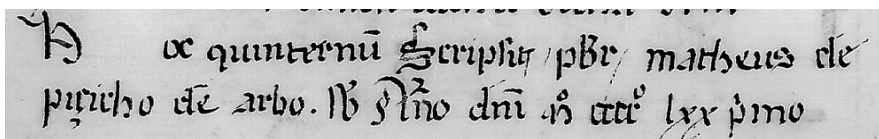 Hoc quinternū Scripsit pb̄r matheus de
pizicho de arbo. Sb̄ Āno dn̄i mº ccccº lxx pͥmo